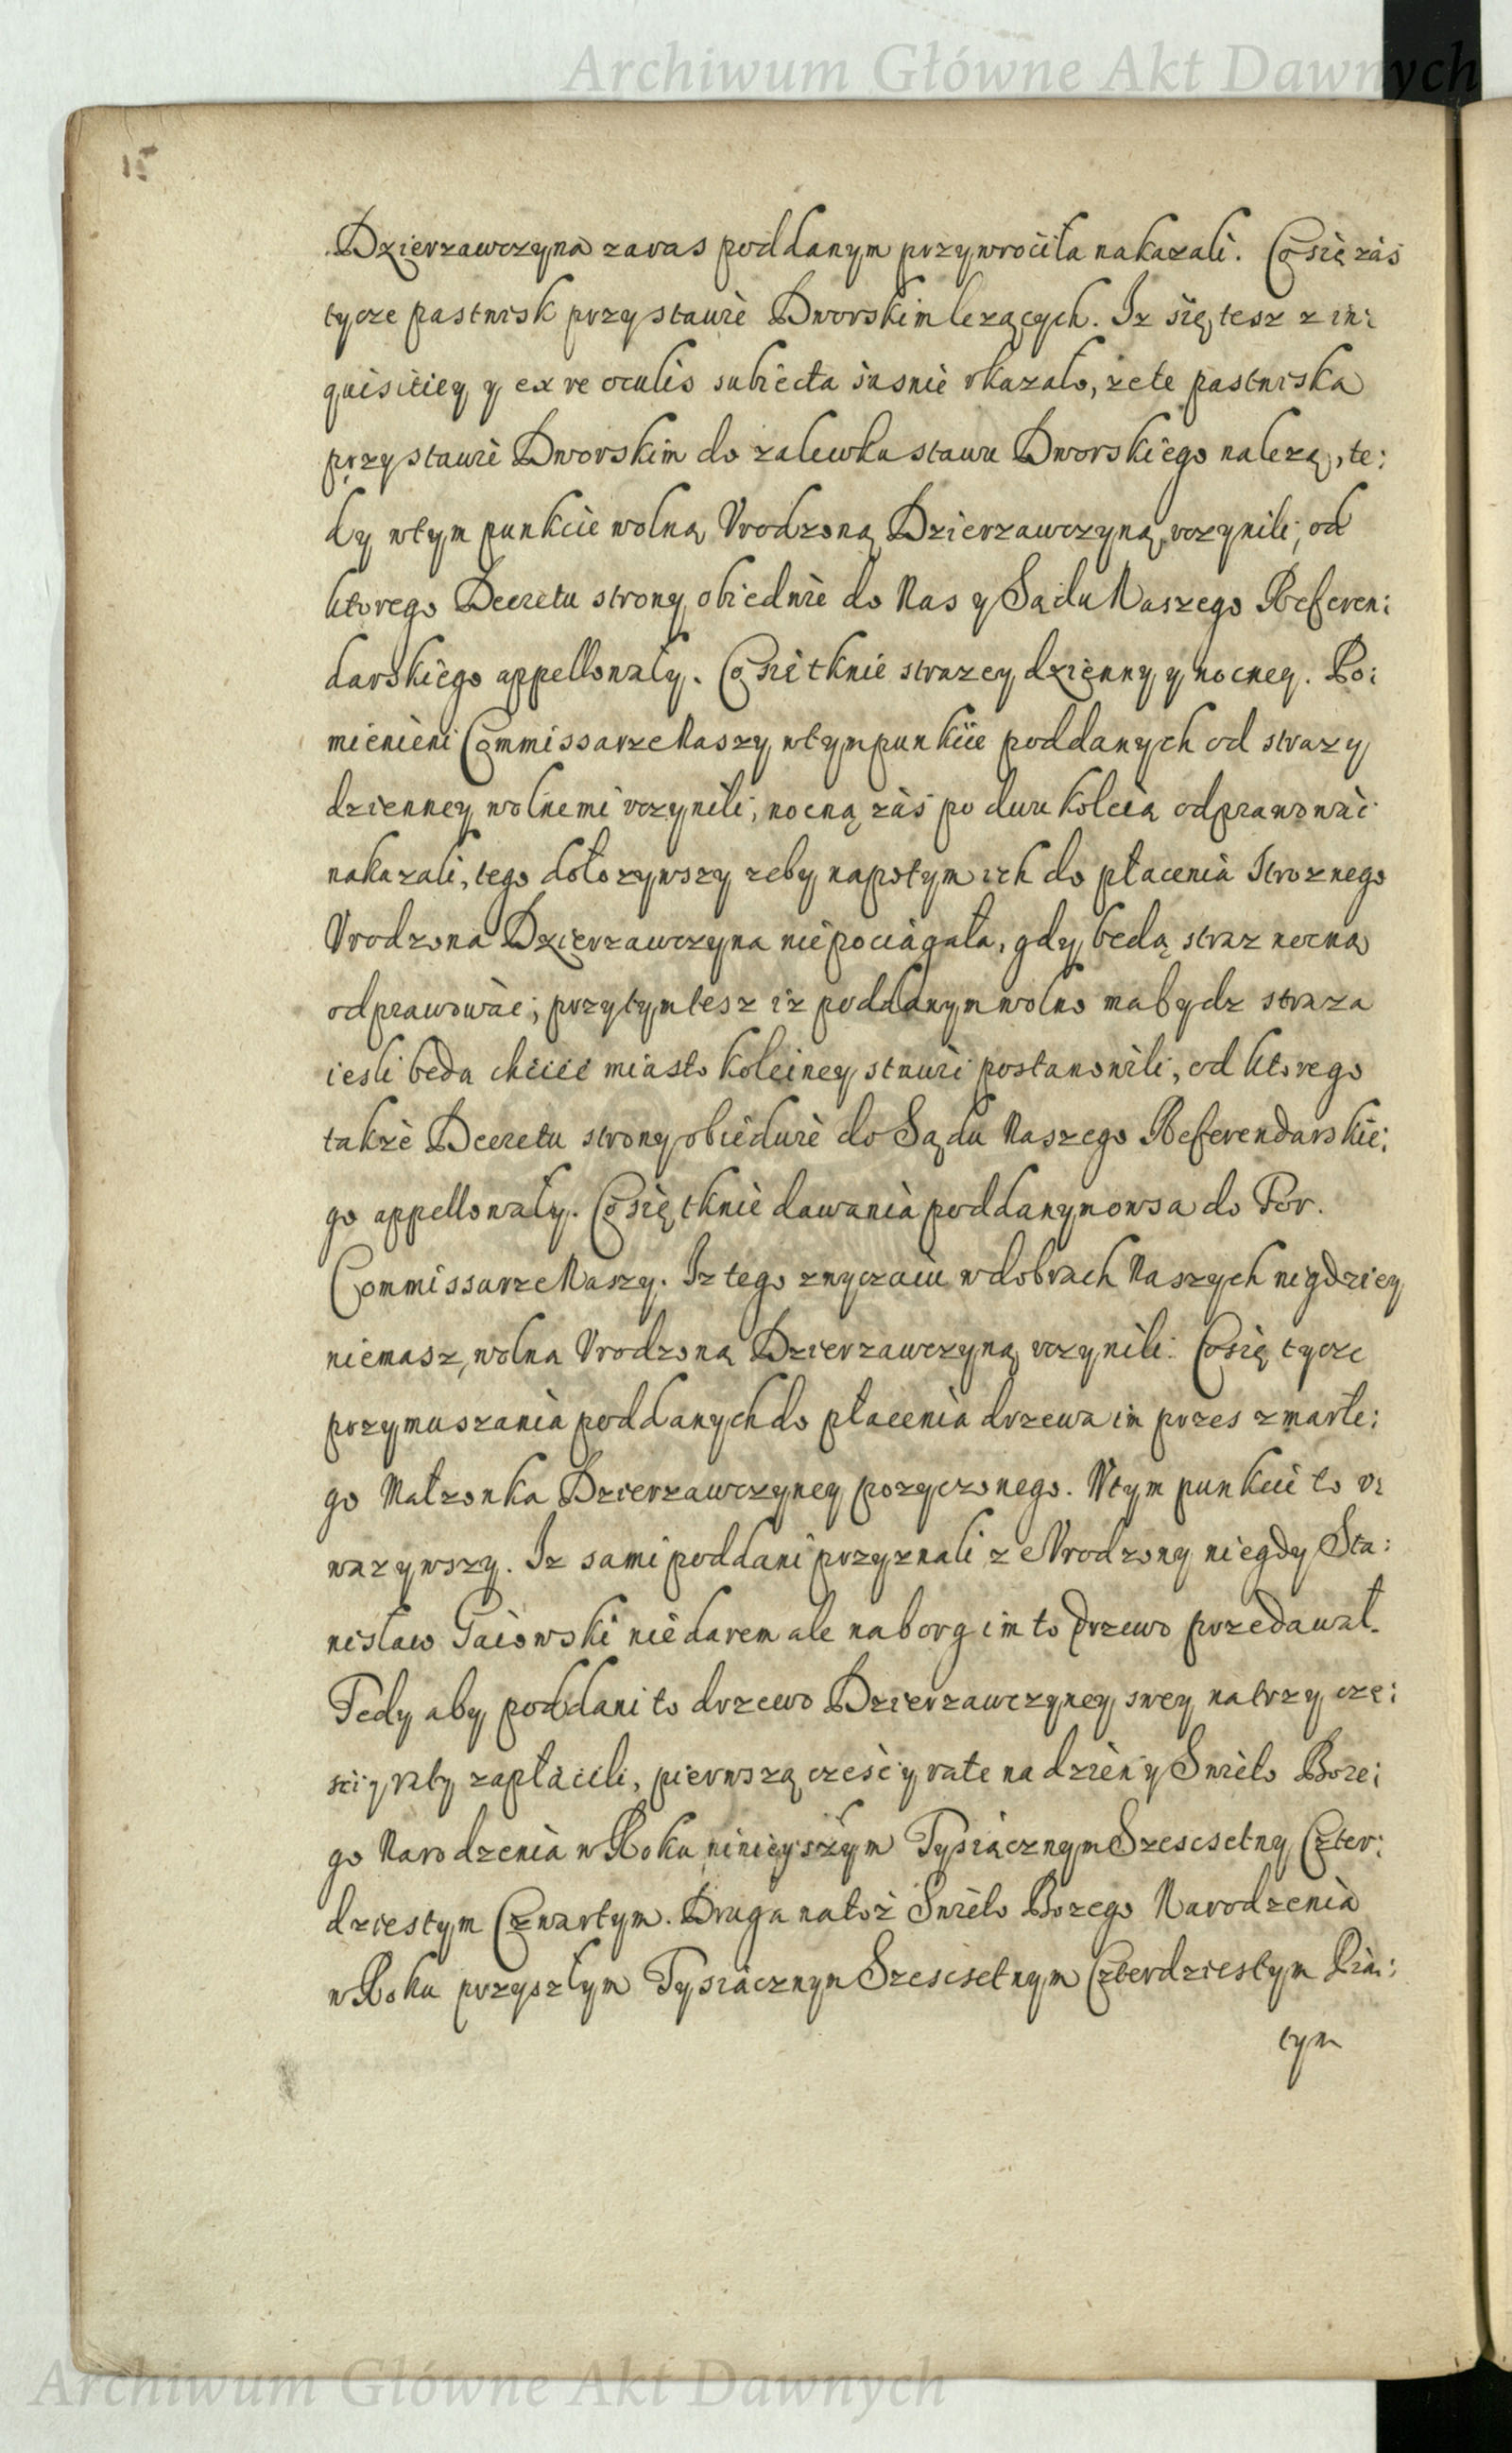 Archiwum Główne Akt Dawnych
15
Dzierzawczyna zaras poddanym przywrociła nakazali. Co się zás
tycze pastwisk przy stawie Dworskim lezących. Iz się tesz z in:
quisitiey y ex re oculis subiecta iasnie vkazało, ze te pastwiska
przy stawie Dworskim do zalewku stawu Dworskiego nalezą, te:
dy wtym punkcie wolną Vrodzoną Dzierzawczyną vczynili, od
ktorego Decretu strony obiedwie do Nas y Sądu Naszego Referen:
darskiego appellowały. Co się tknie strazey dzienny y nocney. Po:
mienieni Commissarze Naszy wtym punkcie poddanych od strazy
dzienney wolnemi vczynili, nocną zás po dwu kolcią odprawowác
nakazali, tego dołozywszy zeby napotym ich do płacenia Stroznego
Vrodzona Dzierzawczyna nie pociągała, gdy będą straz nocną
odprawowác; przytym tesz iz poddanym wolno ma bydz straza
iesli będa chcieć miasto koleiney stawic postanowili, od ktorego
także Decretu strony obiedwie do Sądu Naszego Referendarskie:
go appellowały. Co się tknie dawania poddanym owsa do Por.
Commissarze Naszy. Iz tego zwyczaiu w dobrach Naszych nigdziey
niemasz, wolna Vrodzoną Dzierzawczyną vczynili. Co się tycze
przymuszania poddanych do płacenia drzewa im przes zmarłe:
go Małzonka Dzierzawczyney pozyczonego. Wtym punkcie to v:
wazywszy. Iz sami poddani przyznali ze Vrodzony niegdy Sta:
nisław Gaiowski nie darem ale na borg im to drzewo przedawał.
Tedy aby poddani to drzewo Dzierzawczyney swey na trzy czę:
sci y raty zapłacili, pierwszą częśc y rate na dzień y Swięto Boze:
go Narodzenia w Roku ninieyszym Tysiącznym Szescsetny Czter:
dziestym Czwartym. Druga na toż Swięto Bozego Narodzenia
w Roku przyszłym Tysiącznym Szescsetnym Czterdziestym Pią:
tym
Archiwum Główne Akt Dawnych